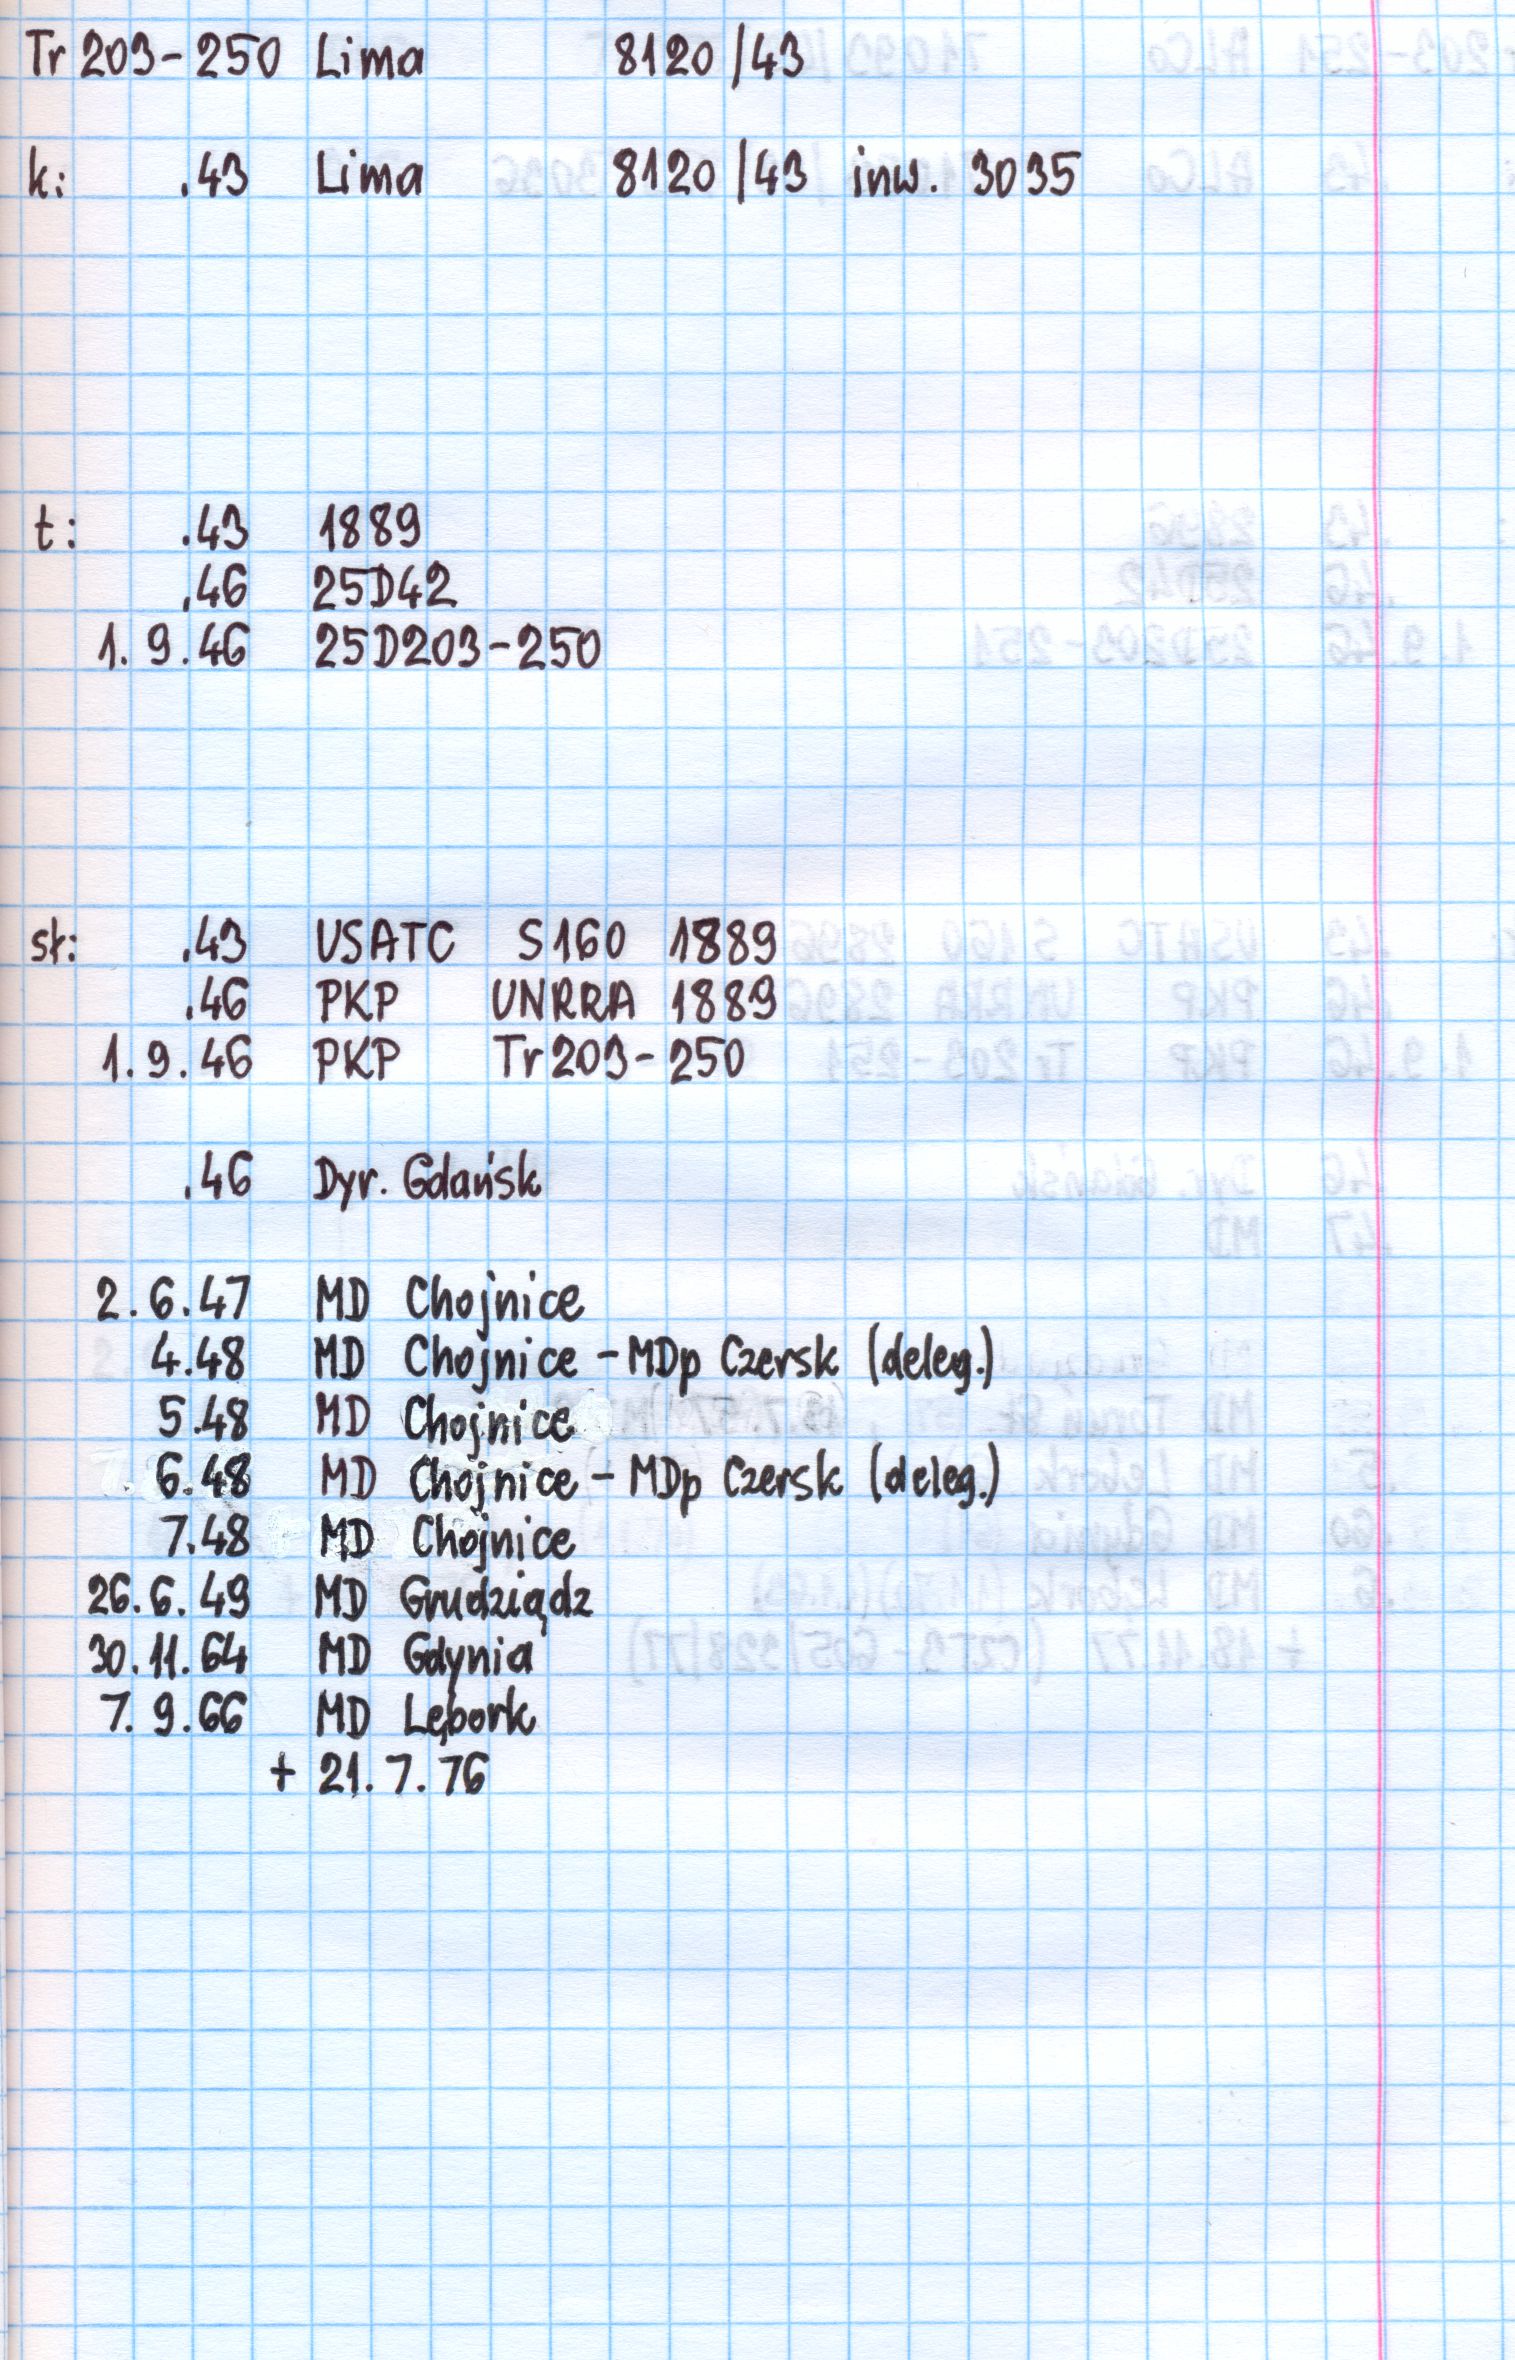 Tr 203-250 Lima 8120/43
k: .43 Lima 8120/43 inw. 3035
t: .43 1889
.46 25D42
1.9.46 25D203-250
sł: .43 USATC S160 1889
.46 PKP UNRRA 1889
1.9.46 PKP Tr203-250
.46 Dyr. Gdańsk
2.6.47 MD Chojnice
4.48 MD Chojnice - MDp Czersk (deleg.)
5.48 MD Chojnice
6.48 MD Chojnice - MDp Czersk (deleg.)
7.48 MD Chojnice
26.6.49 MD Grudziądz
30.11.64 MD Gdynia
7.9.66 MD Lębork
+ 21.7.76